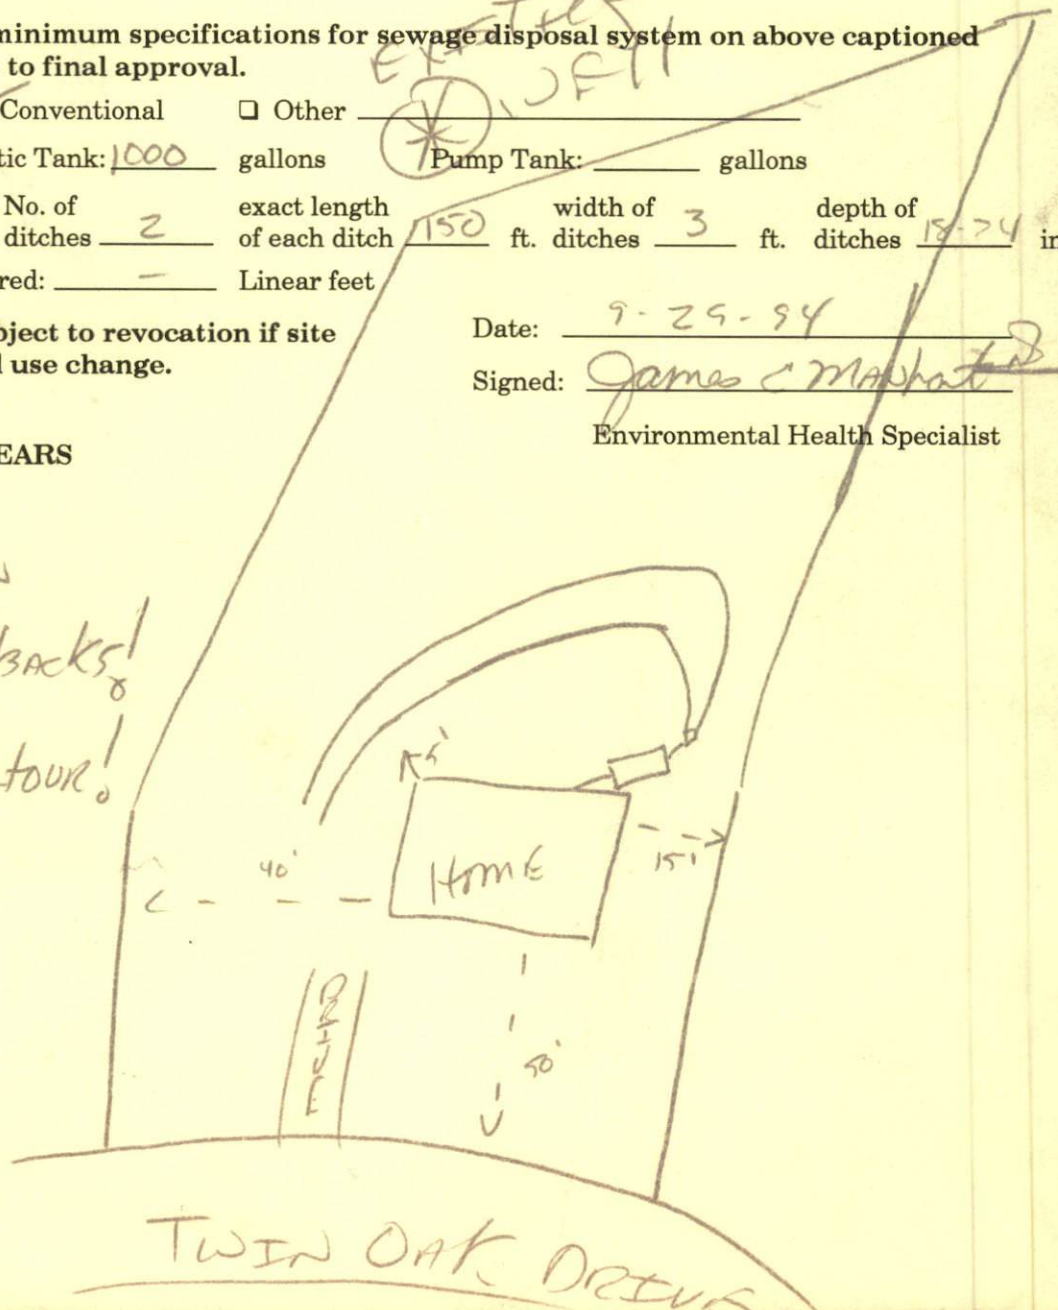 minimum specifications for sewage disposal system on above captioned
to final approval.
Conventional ☐ Other
tic Tank: 1000 gallons Pump Tank: gallons
No. of ditches 2 exact length of each ditch 150 ft. width of ditches 3 ft. depth of ditches 18-24 in
red: — Linear feet
bject to revocation if site
use change.
Date: 9-29-94
Signed: James C
Environmental Health Specialist
EARS
BACKS!
TOUR!
5'
HOME
40'
15'
DRIVE
50'
TWIN OAK DRIVE